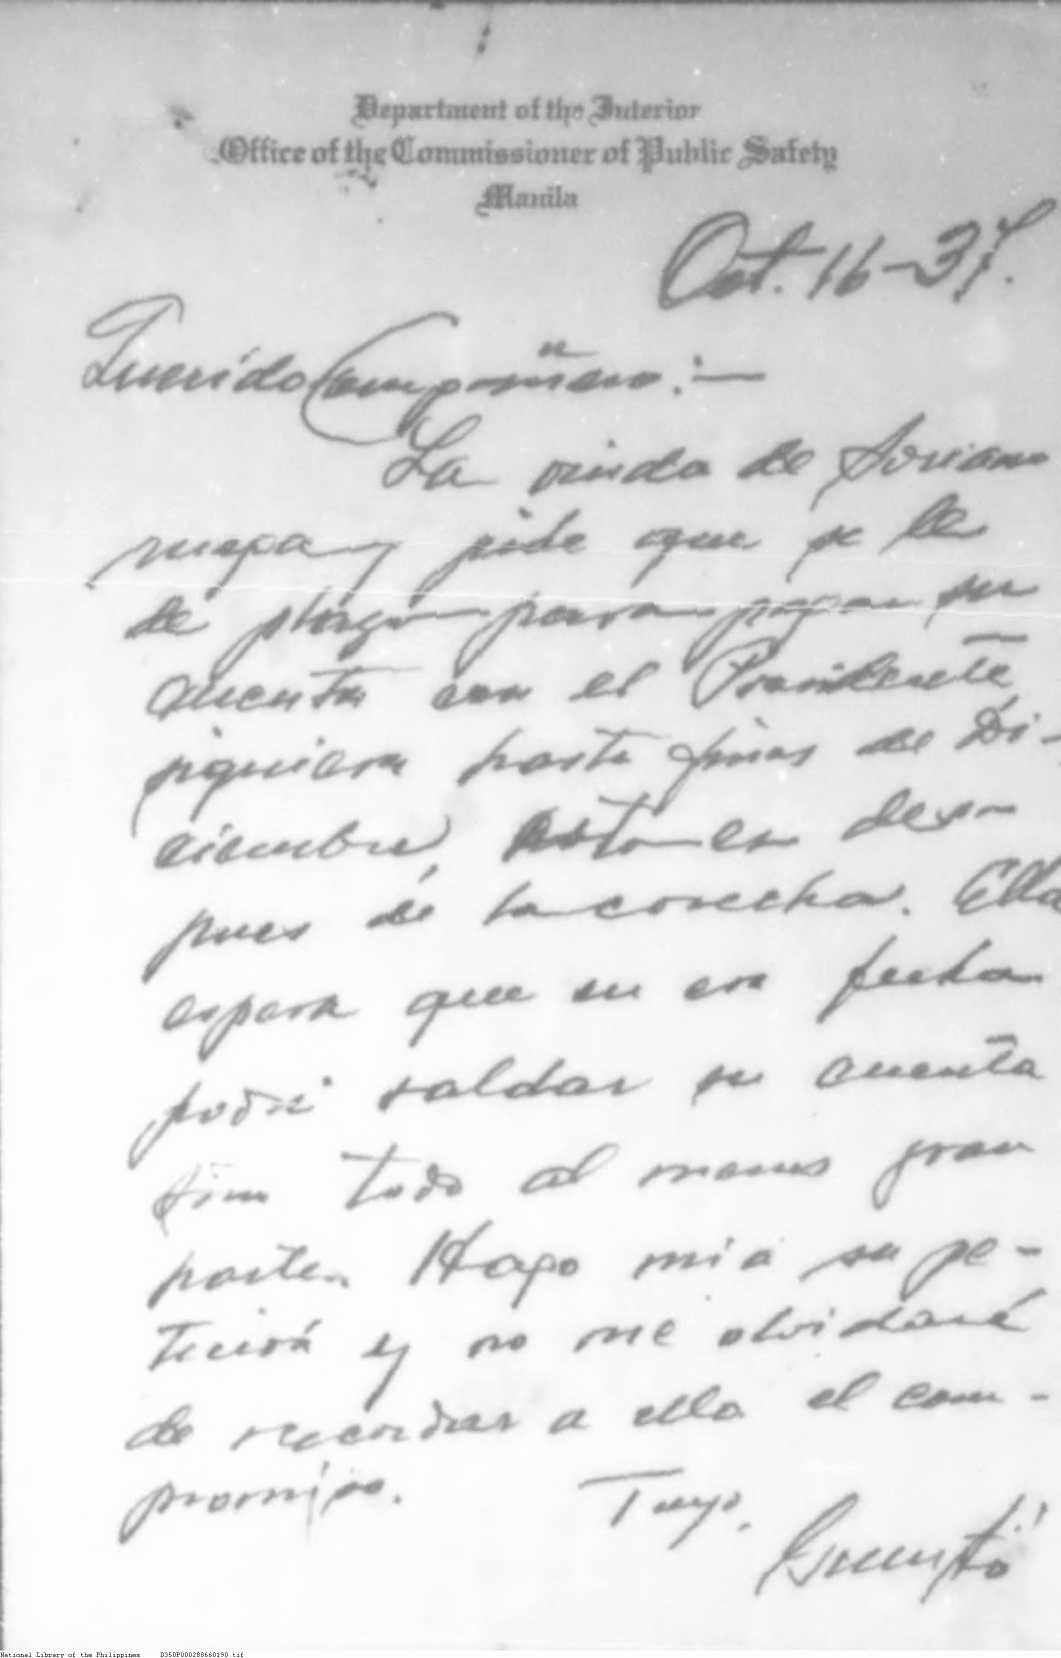 Department of the Interior
Office of the Commissioner of Public Safety
Manila
Oct. 16-37.
Querido Compañero:—
La viuda de Soriano
pide que se le
de plazo para pagar su
cuenta con el Presidente
siquiera hasta fines de Di-
ciembre, esto es des-
pues de la cosecha. Ella
espera que en esa fecha
podrá saldar su cuenta
sino todo al menos gran
parte. Hago mia su pe-
tición y no me olvidaré
de recordar a ella el com-
promiso. Tuyo,
National Library of the Philippines D350P000288660190.tif